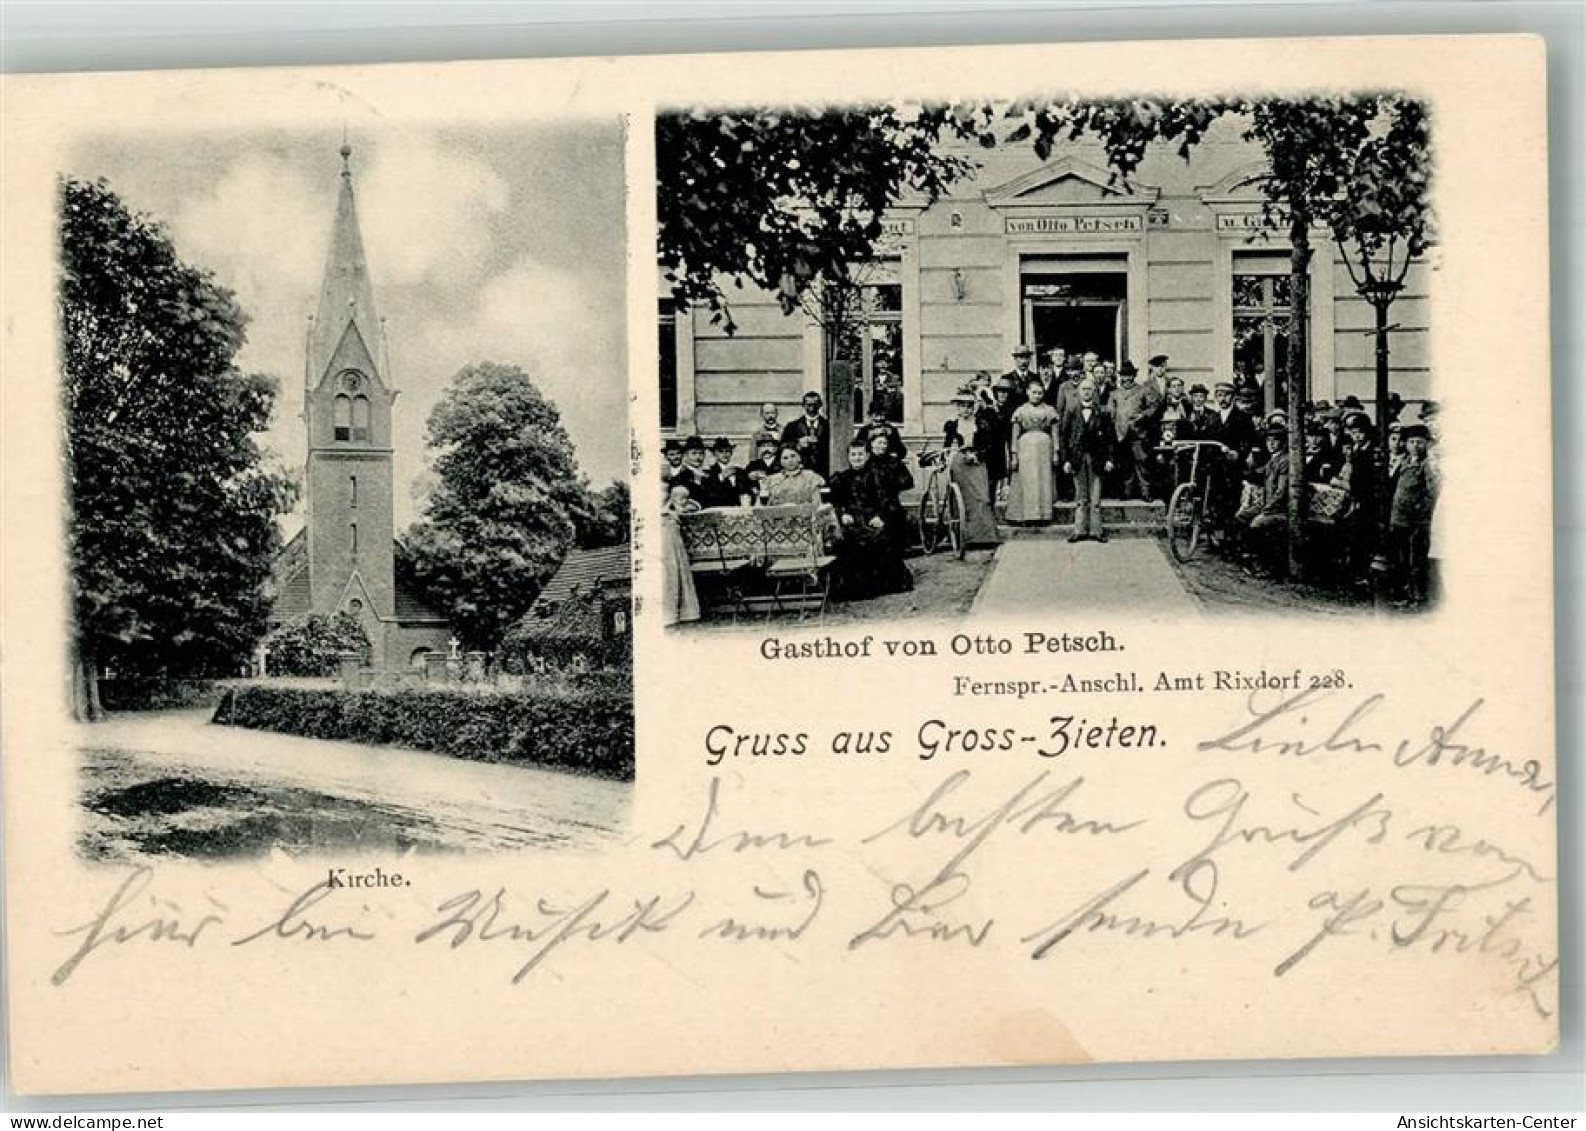 von Otto Petsch
Gasthof von Otto Petsch.
Fernspr.-Anschl. Amt Rixdorf 228.
Gruss aus Gross-Zieten.
Kirche.
Liebe Anna,
Den besten Gruß von
hier bei Musik und Bier sendet P. Fritsch
www.delcampe.net
Ansichtskarten-Center